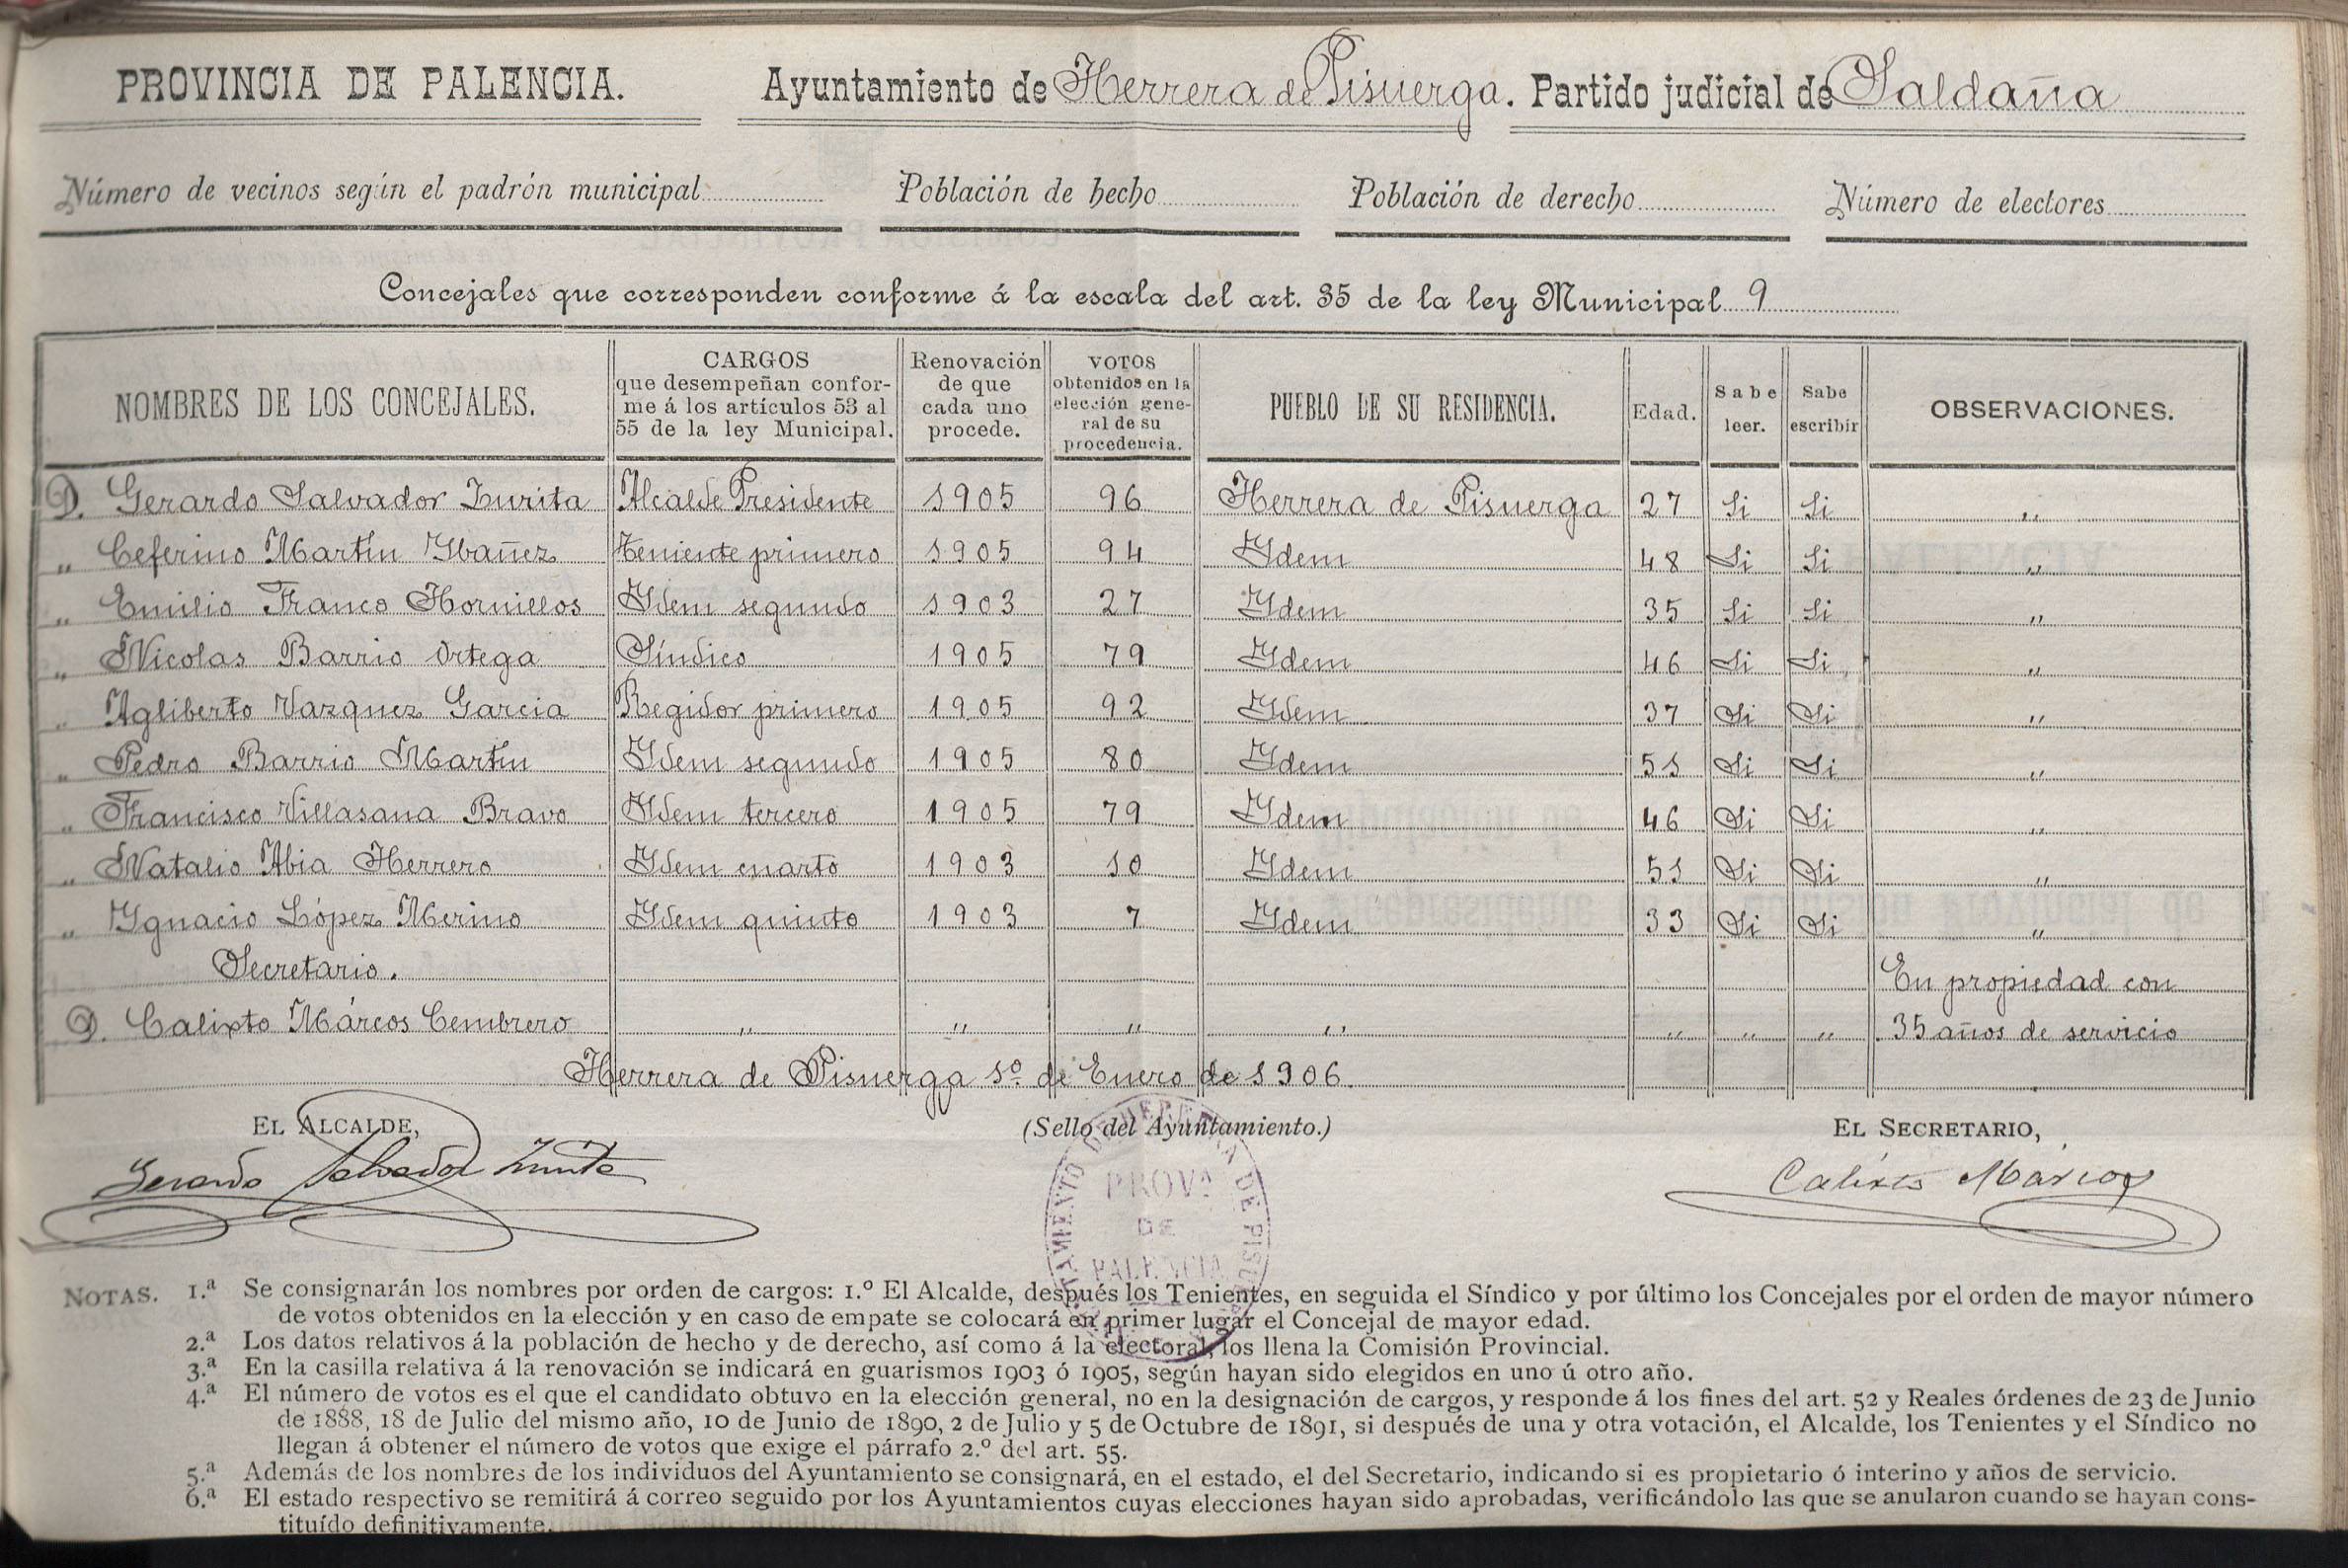 PROVINCIA DE PALENCIA. Ayuntamiento de Herrera de Pisuerga. Partido judicial de Saldaña
Número de vecinos según el padrón municipal Población de hecho Población de derecho Número de electores
Concejales que corresponden conforme á la escala del art. 35 de la ley Municipal 9
NOMBRES DE LOS CONCEJALES. CARGOS que desempeñan confor-me á los artículos 53 al 55 de la ley Municipal. Renovación de que cada uno procede. VOTOS obtenidos en la elección gene-ral de su procedencia. PUEBLO DE SU RESIDENCIA. Edad. Sabe leer. Sabe escribir OBSERVACIONES.
D. Gerardo Salvador Zurita Alcalde Presidente 1905 96 Herrera de Pisuerga 27 Si Si „
„ Ceferino Martín Ybañez Teniente primero 1905 94 Ydem 48 Si Si „
„ Emilio Franco Hornillos Ydem segundo 1903 27 Ydem 35 Si Si „
„ Nicolas Barrio Ortega Síndico 1905 79 Ydem 46 Si Si „
„ Agliberto Vazquez Garcia Regidor primero 1905 92 Ydem 37 Si Si „
„ Pedro Barrio Martín Ydem segundo 1905 80 Ydem 51 Si Si „
„ Francisco Villasana Bravo Ydem tercero 1905 79 Ydem 46 Si Si „
„ Natalio Abia Herrero Ydem cuarto 1903 10 Ydem 51 Si Si „
„ Ygnacio López Merino Ydem quinto 1903 7 Ydem 33 Si Si „
Secretario. En propiedad con
D. Calixto Márcos Cembrero „ „ „ „ „ „ „ 35 años de servicio
Herrera de Pisuerga 1º de Enero de 1906.
EL ALCALDE, (Sello del Ayuntamiento.) EL SECRETARIO,
Gerardo Salvador Zurita Calixto Márcos
AYUNTAMIENTO DE HERRERA DE PISUERGA
PROVA
DE
PALENCIA
NOTAS. 1.ª Se consignarán los nombres por orden de cargos: 1.º El Alcalde, después los Tenientes, en seguida el Síndico y por último los Concejales por el orden de mayor número
de votos obtenidos en la elección y en caso de empate se colocará en primer lugar el Concejal de mayor edad.
2.ª Los datos relativos á la población de hecho y de derecho, así como á la electoral, los llena la Comisión Provincial.
3.ª En la casilla relativa á la renovación se indicará en guarismos 1903 ó 1905, según hayan sido elegidos en uno ú otro año.
4.ª El número de votos es el que el candidato obtuvo en la elección general, no en la designación de cargos, y responde á los fines del art. 52 y Reales órdenes de 23 de Junio
de 1888, 18 de Julio del mismo año, 10 de Junio de 1890, 2 de Julio y 5 de Octubre de 1891, si después de una y otra votación, el Alcalde, los Tenientes y el Síndico no
llegan á obtener el número de votos que exige el párrafo 2.º del art. 55.
5.ª Además de los nombres de los individuos del Ayuntamiento se consignará, en el estado, el del Secretario, indicando si es propietario ó interino y años de servicio.
6.ª El estado respectivo se remitirá á correo seguido por los Ayuntamientos cuyas elecciones hayan sido aprobadas, verificándolo las que se anularon cuando se hayan cons-
tituído definitivamente.